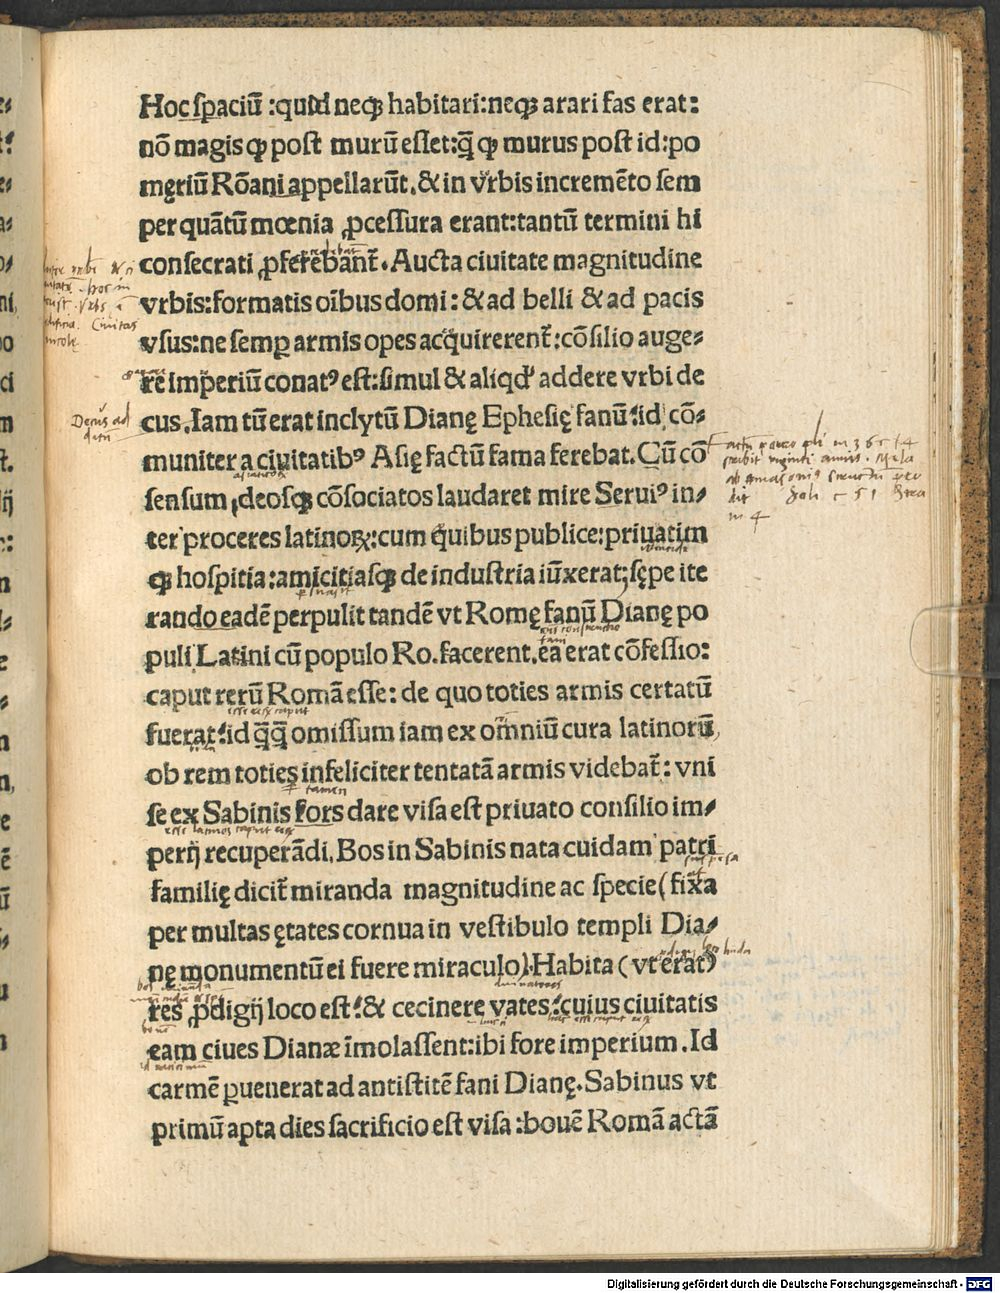 Hoc spaciū :quıđ neqꝫ habitari:neqꝫ arari fas erat:
nō magis ꝙ post murū esset:q̄ ꝙ murus post id:po
męriū Rōani appellarūt.& in vrbis incremēto sem
per quātū mœnia ꝓcessura erant:tantū termini hi
consecrati ꝓferēbant̄. Aucta ciuitate magnitudine
vrbis:formatis oībus domi: & ad belli & ad pacis
vsus:ne semꝑ armis opes acquirerent̄:cōsilio auge⸗
re imperiū conatꝰ est:simul & aliqđ addere vrbi de
cus. Iam tū erat inclytū Dianę Ephesię fanū:id cō⸗
muniter a ciuitatibꝰ Asię factū fama ferebat. Cū cō
sensum deosqꝫ cōsociatos laudaret mire Seruiꝰ in⸗
ter proceres latinoꝝ:cum quibus publice:priuatim
qꝫ hospitia:amicitiasqꝫ de industria iūxerat;sępe ite
rando eadē perpulit tandē vt Romę fanū Dianę po
puli Latini cū populo Ro.facerent.ea erat cōfessio:
caput rerū Romā esse: de quo toties armis certatū
fuerat:id q̄q̄ omissum iam ex omniū cura latinorū,
ob rem toties infeliciter tentatā armis videbat̄: vni
se ex Sabinis fors dare visa est priuato consilio im⸗
perij recuperādi. Bos in Sabinis nata cuidam patri
familię dicit̄ miranda magnitudine ac specie(fixa
per multas ętates cornua in vestibulo templi Dia⸗
nę monumentū ei fuere miraculo). Habita (vt erat)
res ꝓdigij loco est:& cecinere vates:cuius ciuitatis
eam ciues Dianæ īmolassent:ibi fore imperium. Id
carmē ꝑuenerat ad antistitē fani Dianę. Sabinus vt
primū apta dies sacrificio est visa :bouē Romā actā
Decus ad
Digitalisierung gefördert durch die Deutsche Forschungsgemeinschaft - DFG